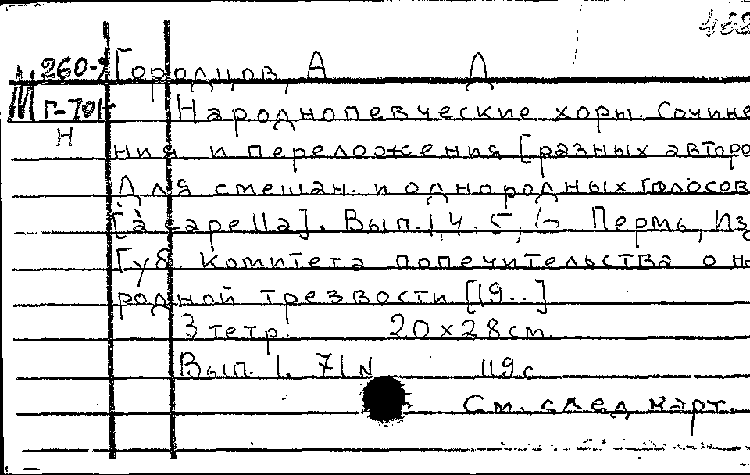 468
260-2 Городцов, А Д
М Г-701 Народнопевческие хоры. Сочине
Н
ния и переложения [разных авторо
Для смешан. и однородных голосов
[à capella]. Вып. 1, 4, 5, 6 Пермь, Из
Губ комитета попечительства о на
родной трезвости [19..]
3 тетр. 20x28 см.
Вып. 1. 71 N 119 с
См. след карт.